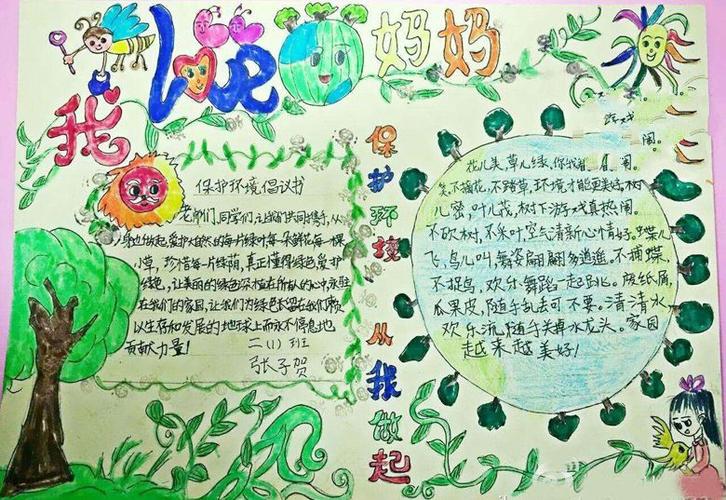 我 Love 妈妈
保护环境倡议书
老师们,同学们,让我们共同携手,从
身边做起,爱护大自然的每片绿叶每朵鲜花每一棵
小草,珍惜每片绿荫,真正懂得绿色,爱护
绿色,让美丽的绿色深植在所有人的心中,永驻
在我们的家园,让我们为绿色永留在我们赖
以生存和发展的地球上而永不停息地
贡献力量!
二(1)班
张子贺
保护环境 从我做起
花儿美,草儿绿,你我 闹。
不摘花,不踏草,环境才能更美好。树
儿密,叶儿茂,树下游戏真热闹。
不砍树,不采叶,空气清新心情好。蝶儿
飞,鸟儿叫,舞姿翩翩多逍遥。不捕蝶,
不捉鸟,欢乐舞蹈一起跳。废纸屑,
瓜果皮,随手乱丢可不要。清清水
欢乐流,随手关掉水龙头。家园
越来越美好!